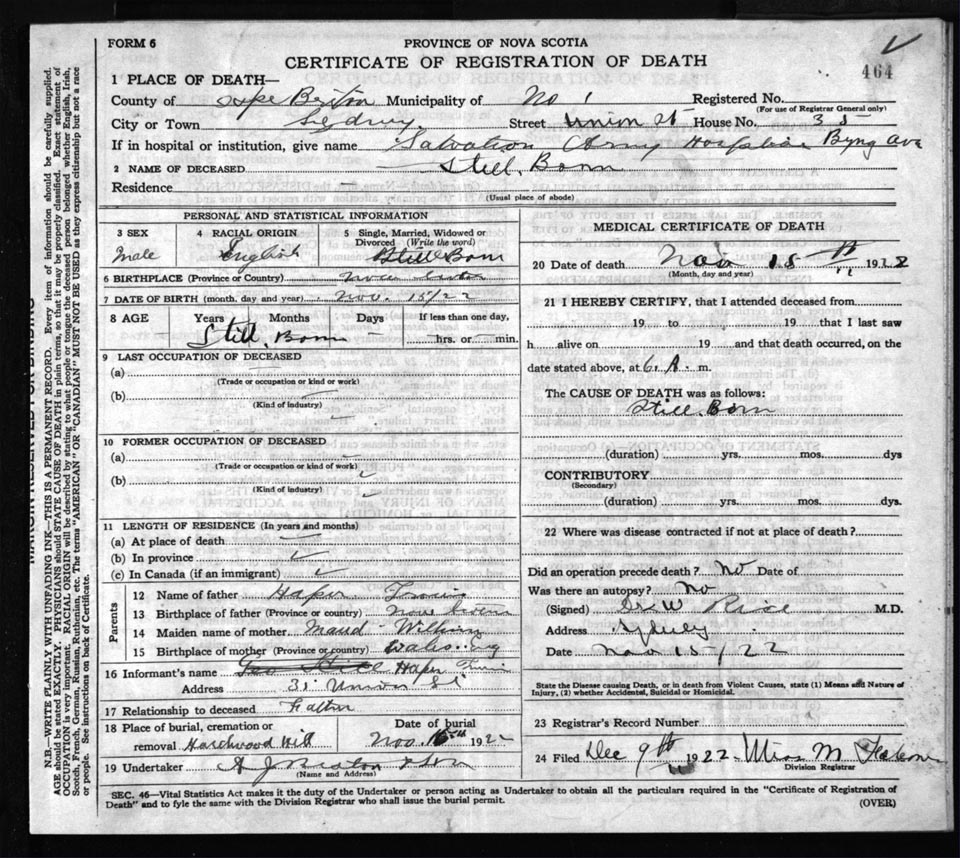 FORM 6
PROVINCE OF NOVA SCOTIA
CERTIFICATE OF REGISTRATION OF DEATH
464
1 PLACE OF DEATH—
County of Cape Breton Municipality of No 1 Registered No.
(For use of Registrar General only)
City or Town Sydney Street Union St House No. 35
If in hospital or institution, give name Salvation Army Hospital Byng Ave
2 NAME OF DECEASED Still Born
Residence
(Usual place of abode)
PERSONAL AND STATISTICAL INFORMATION
3 SEX
Male
4 RACIAL ORIGIN
English
5 Single, Married, Widowed or Divorced (Write the word)
Still Born
6 BIRTHPLACE (Province or Country) Nova Scotia
7 DATE OF BIRTH (month, day and year) Nov. 15/22
8 AGE Years Months Days If less than one day,
Still Born hrs. or min.
9 LAST OCCUPATION OF DECEASED
(a)
(Trade or occupation or kind or work)
(b)
(Kind of industry)
10 FORMER OCCUPATION OF DECEASED
(a)
(Trade or occupation or kind of work)
(b)
(Kind of industry)
11 LENGTH OF RESIDENCE (In years and months)
(a) At place of death
(b) In province
(c) In Canada (if an immigrant)
Parents
12 Name of father
13 Birthplace of father (Province or country) Nova Scotia
14 Maiden name of mother Maud
15 Birthplace of mother (Province or country) Wales
16 Informant's name
Address 35 Union St
17 Relationship to deceased Father
18 Place of burial, cremation or removal Hardwood Hill
Date of burial Nov. 16th 1922
19 Undertaker A J & Son
(Name and Address)
MEDICAL CERTIFICATE OF DEATH
20 Date of death Nov 15th 1922
(Month, day and year)
21 I HEREBY CERTIFY, that I attended deceased from
19 to 19 that I last saw
h alive on 19 and that death occurred, on the
date stated above, at 6. A. m.
The CAUSE OF DEATH was as follows:
Still Born
(duration) yrs. mos. dys
CONTRIBUTORY
(Secondary)
(duration) yrs. mos. dys.
22 Where was disease contracted if not at place of death?
Did an operation precede death? No Date of
Was there an autopsy? No
(Signed) Dr. W Rice M.D.
Address Sydney
Date Nov 15/22
State the Disease causing Death, or in death from Violent Causes, state (1) Means and Nature of Injury, (2) whether Accidental, Suicidal or Homicidal.
23 Registrar's Record Number
24 Filed Dec 9th 1922 Miss M
Division Registrar
SEC. 46—Vital Statistics Act makes it the duty of the Undertaker or person acting as Undertaker to obtain all the particulars required in the "Certificate of Registration of
Death" and to fyle the same with the Division Registrar who shall issue the burial permit.
(OVER)
MARGIN RESERVED FOR BINDING
N.B.—WRITE PLAINLY WITH UNFADING INK—THIS IS A PERMANENT RECORD. Every item of information should be carefully supplied.
AGE should be stated EXACTLY. PHYSICIANS should STATE CAUSE OF DEATH in plain terms, so that it may be properly classified. Exact statement of
OCCUPATION is very important. RACIAL ORIGIN will be described by stating to what people or tongue the deceased person belonged whether English, Irish,
Scotch, French, German, Russian, Ruthenian, etc. The terms "AMERICAN" OR "CANADIAN" MUST NOT BE USED AS they express citizenship but not a race
or people. See instructions on back of Certificate.